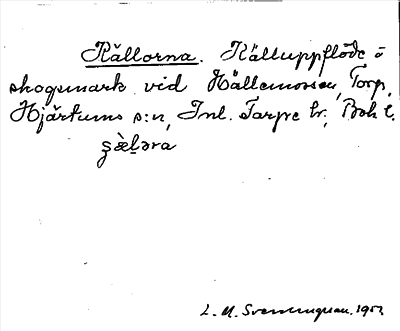 Källorna. Källuppflöde å
skogsmark vid Hällemossen, Torp,
Hjärtums s:n, Inl. Torpe hr, Boh l.
L. M. Svenungsson. 1953